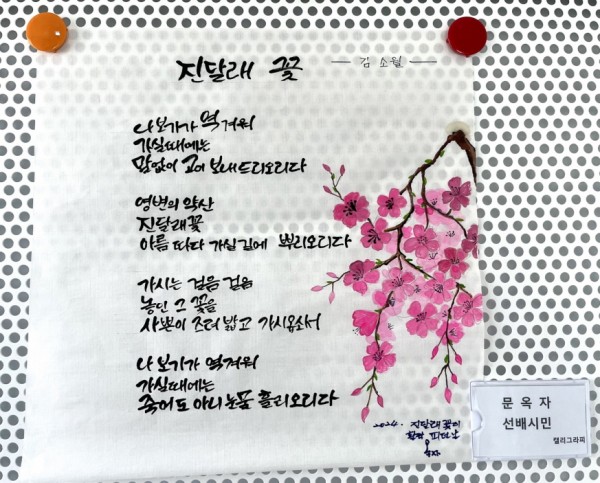 진달래 꽃
김 소월
나 보기가 역겨워
가실 때에는
말없이 고이 보내 드리오리다
영변의 약산
진달래꽃
아름 따다 가실 길에 뿌리오리다
가시는 걸음 걸음
놓인 그 꽃을
사뿐이 즈려 밟고 가시옵소서
나 보기가 역겨워
가실 때에는
죽어도 아니 눈물 흘리오리다
2024. 진달래 꽃이
활짝 피던 날
옥자
문 옥 자
선배시민
캘리그라피